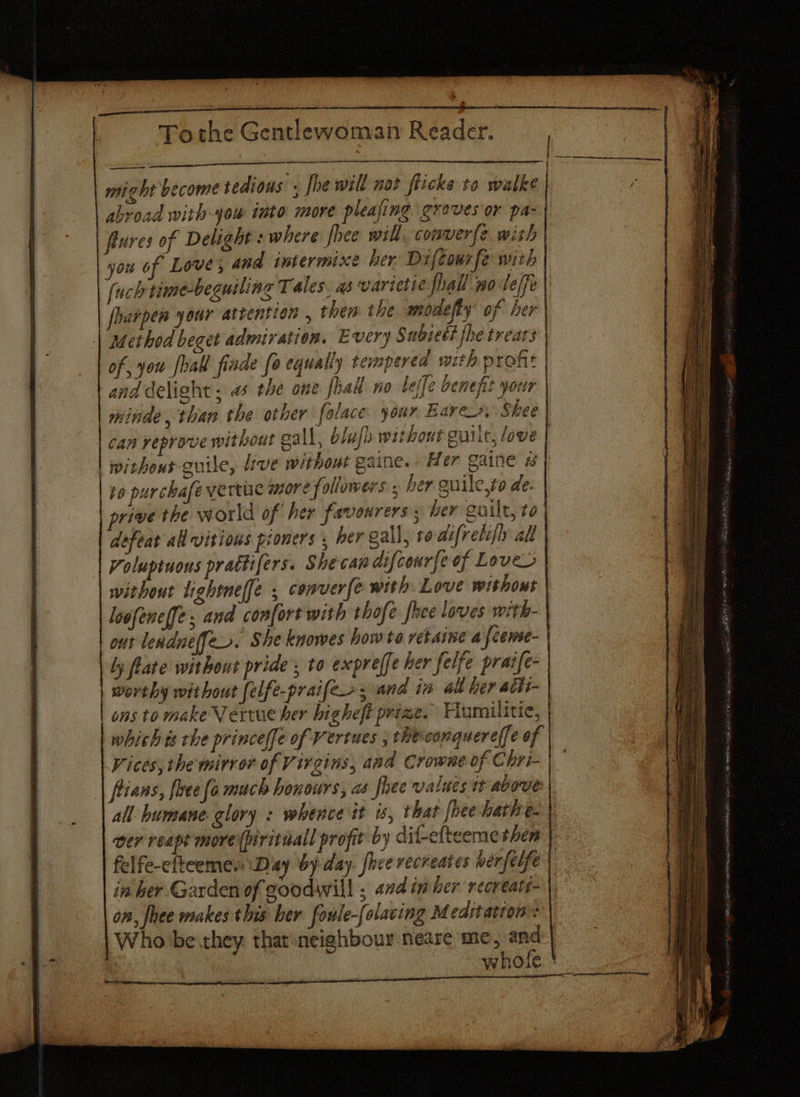 To the Gentlewoman Reader.
might become tedious ; ſhe will not ſticke to walke
abroad with you into more pleaſing groves or pa-
ſtures of Delight : where ſhee will converſe with
you of Love, and intermixe her Diſcourſe with
ſuch time-beguiling Tales, as varietie ſhall no leſſe
ſharpen your attention , then the modeſty of her
Method beget admiration. Every Subiect ſhe treats
of, you ſhall finde ſo equally tempered with profit
and delight ; as the one ſhall no leſſe benefit your
minde, than the other ſolace your Eare. Shee
can reprove without gall, bluſh without guilt, love
without guile, live without gaine. Her gaine is
to purchaſe vertue more followers ; her guile, to de-
prive the world of her favourers ; her guilt, to
defeat all vitious pioners ; her gall, to diſreliſh all
Voluptuous practiſers. She can diſcourſe of Love
without lightneſſe ; converſe with Love without
looſeneſſe ; and conſort with thoſe ſhee loves with-
out leudneſſe. She knowes how to retaine a ſeeme-
ly ſtate without pride ; to expreſſe her ſelfe praiſe-
worthy without ſelfe-praiſe ; and in all her acti-
ons to make Vertue her higheſt prize. Humilitie,
which is the princeſſe of Vertues , the conquereſſe of
Vices, the mirror of Virgins, and Crowne of Chri-
ſtians, ſhee ſo much honours, as ſhee values it above
all humane glory : whence it is, that ſhee hath e-
ver reapt more ſpirituall profit by diſ-eſteeme then
ſelfe-eſteeme. Day by day ſhee recreates her ſelfe
in her Garden of goodwill ; and in her recreati-
on, ſhee makes this her ſoule-ſolacing Meditation :
Who be they that neighbour neare me, and
whoſe